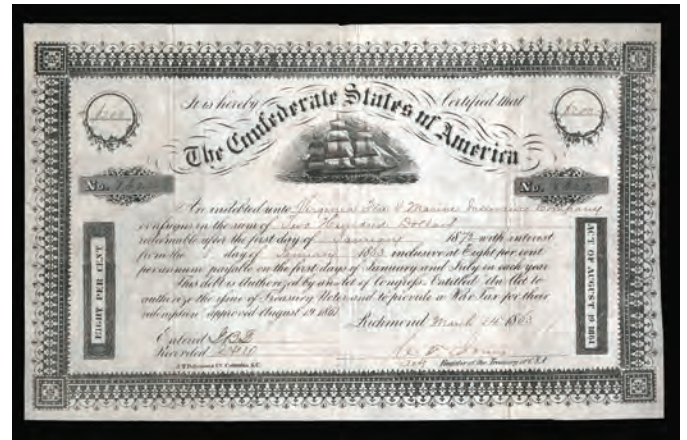 It is hereby Certified that
The Confederate States of America
$200
$200
No.
No.
Are indebted unto Virginia Fire & Marine Insurance Company
or assigns in the sum of Two Hundred Dollars
redeemable after the first day of January 187 with interest
from the day of January 1863 inclusive at Eight per cent
per annum payable on the first days of January and July in each year
This debt is authorized by an Act of Congress Entitled An Act to
authorize the issue of Treasury Notes and to provide a War Tax for their
redemption approved August 19 1861
EIGHT PER CENT
ACT OF AUGUST 19 1861
Richmond March 1863
Entered
Recorded
Register of the Treasury of C.S.A